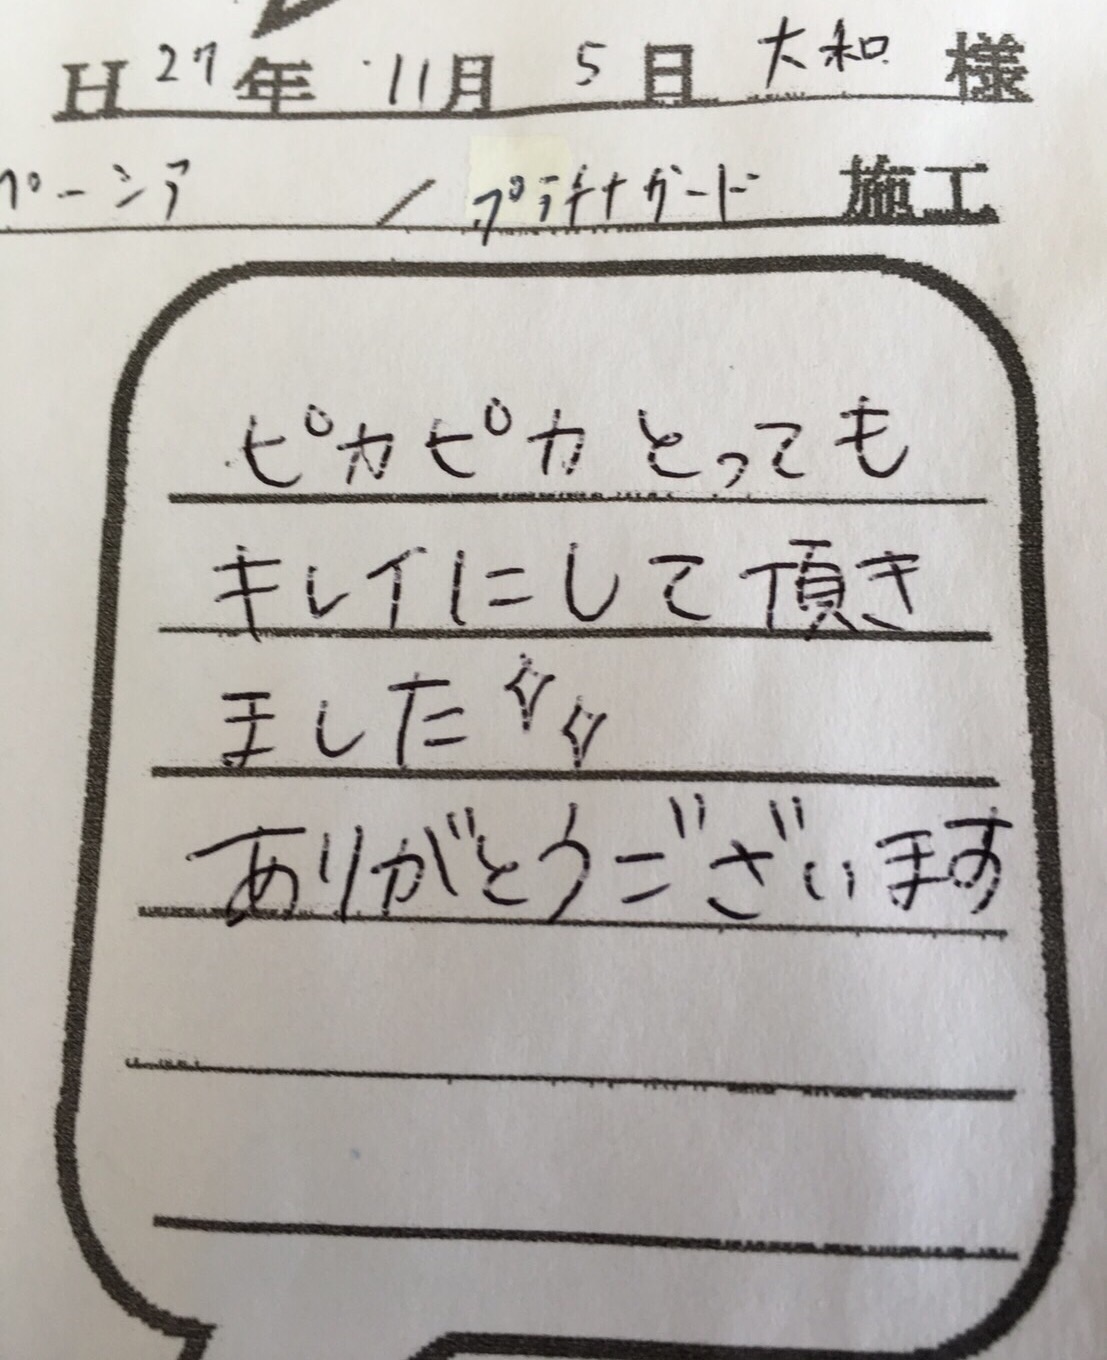 H27年11月5日 大和様
ペーシア / プラチナガード 施工
ピカピカとっても
キレイにして頂き
ました
ありがとうございます